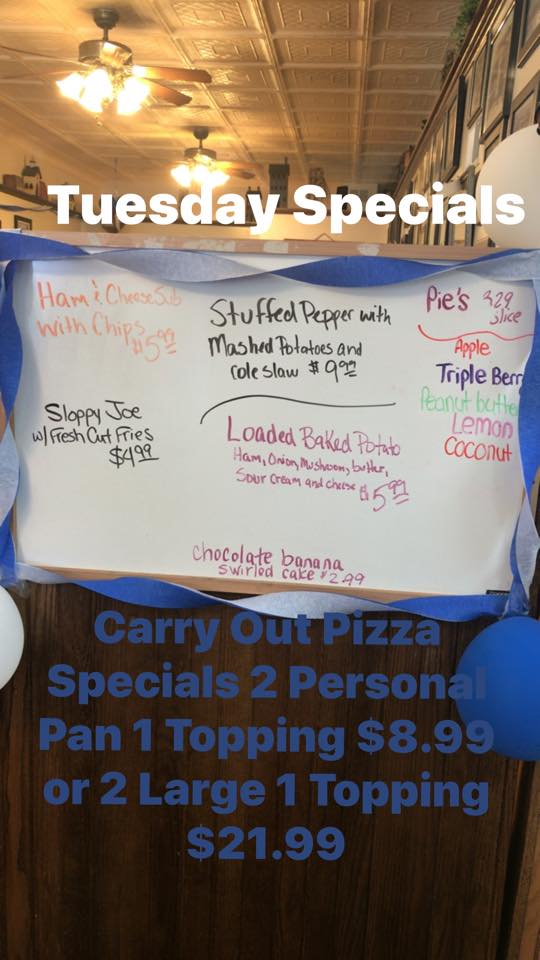 Tuesday Specials
Ham & Cheese Sub
with Chips
$5.99
Sloppy Joe
w/ Fresh Cut Fries
$4.99
Stuffed Pepper with
Mashed Potatoes and
cole slaw $9.99
Loaded Baked Potato
Ham, Onion, Mushroom, butter,
Sour Cream and cheese $5.99
Pie's 3.29
slice
Apple
Triple Berr
Peanut butte
Lemon
Coconut
chocolate banana
swirled cake $2.99
Carry Out Pizza
Specials 2 Personal
Pan 1 Topping $8.99
or 2 Large 1 Topping
$21.99